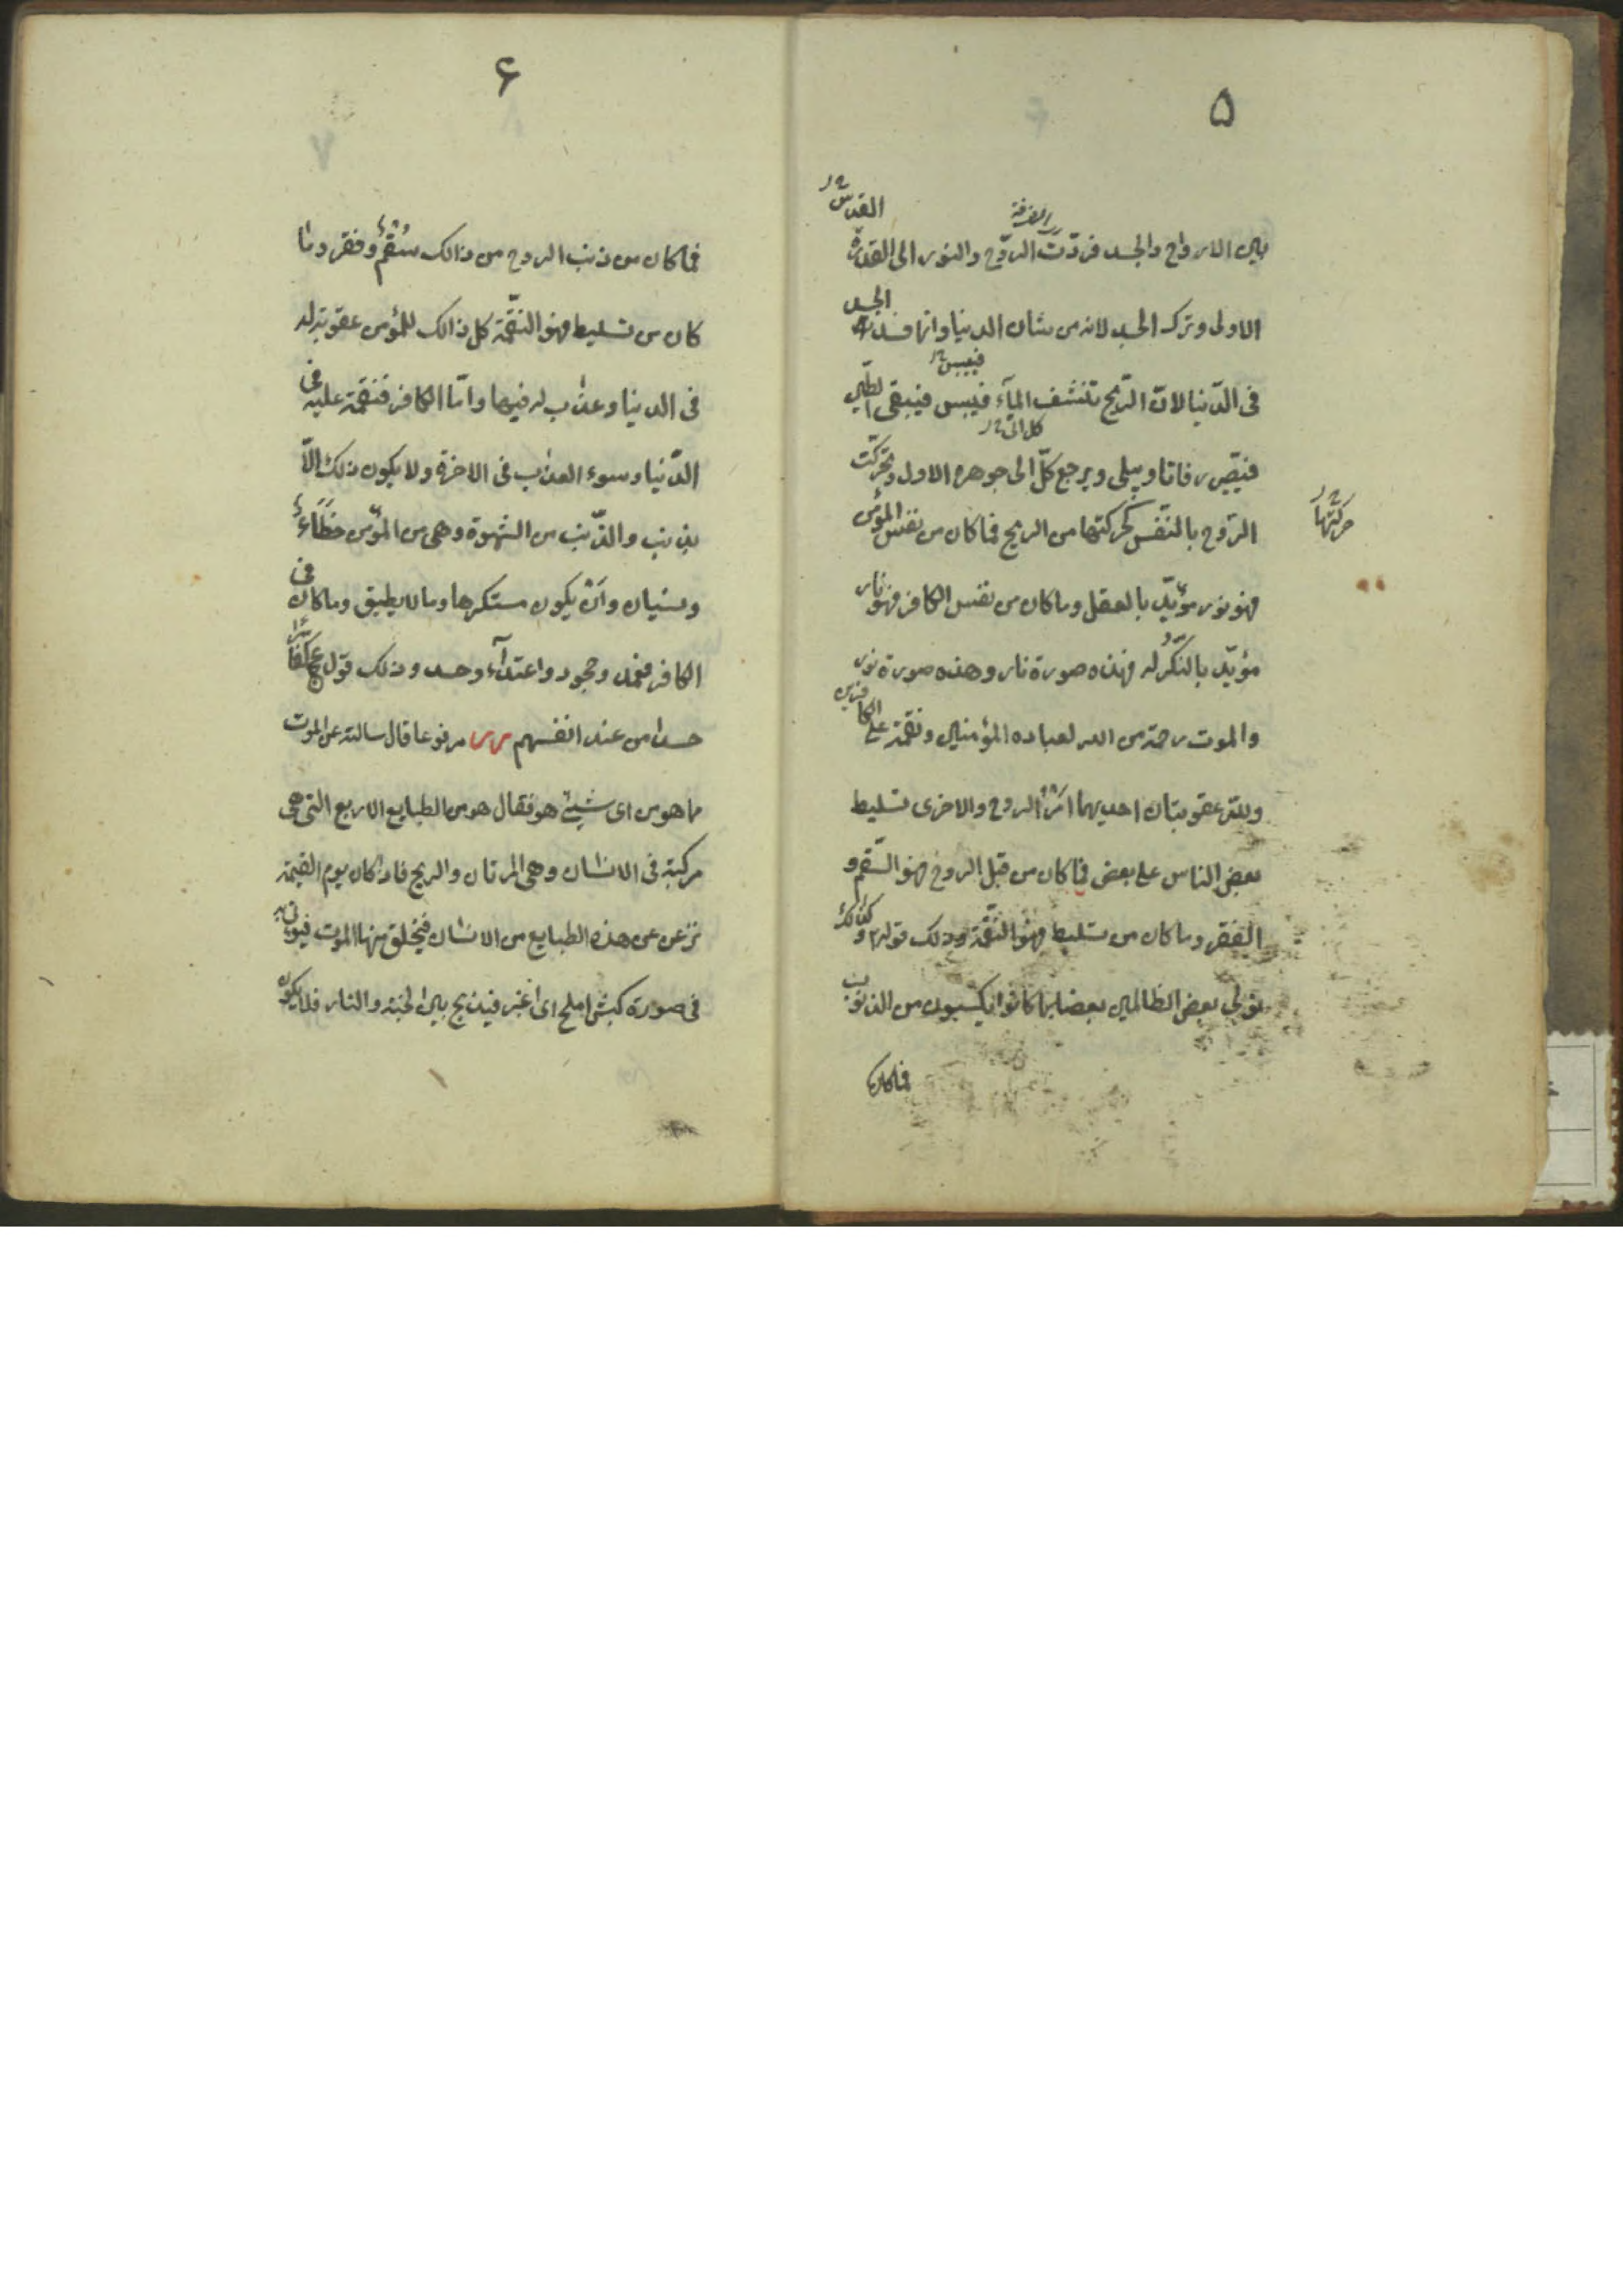 ۵
القدس خ ر
الفرقة
بين الارواح والجسد فردّت الرّوح والنور الى القدرة
الاولى وترك الجسد لانه من شان الدنيا وانما فسد الجسد
فييبس خ
فى الدّنيا لانّ الرّيح تنشف المآء فيبس فيبقى الطين
كل الى خ ر
فيصير رفاتا ويبلى ويرجع كلّ الى جوهره الاول وتحركت
الرّوح بالنّفس كحركتها من الريح فما كان من نفس المؤمن
حركتها خ ر
فهو نور مؤيّد بالعقل وما كان من نفس الكافر فهو نار
مؤيّد بالنكرله فهذه صورة نار وهذه صورة نور
والموت رحمة من الله لعباده المؤمنين ونقمة على الكافرين
ولله عقوبتان احديهما امر الروح والاخرى تسليط
بعض الناس على بعض فما كان من قبل الروح فهو السّقم و
الفقر وما كان من تسليط فهو النّقمة وذلك قوله وكذلك
نولى بعض الظالمين بعضا بما كانوا يكسبون من الذنوب
فما كان
۶
فما كان من ذنب الروح من ذالك سُقمٌ وفقر وما
كان من تسليط فهو النّقمة كل ذالك للمؤمن عقوبة له
فى الدنيا وعذاب له فيها وامّا الكافر فنقمة عليه فى
الدّنيا وسوء العذاب فى الاخرة ولا يكون ذلك الاّ
بذنب والذّنب من الشهوة وهى من المؤمن خَطَاءٌ
ونسيان وان يكون مستكرها وما لا يطيق وما كان فى
الكافر فعمد وجحود واعتدآء وحسد وذلك قول كفارا
حسدا من عند انفسهم س س مرفوعا قال سالته عن الموت
ما هو من اى شيئ هو فقال هو من الطبايع الاربع التى هى
مركبة فى الانسان وهى المرتان والريح فاذا كان يوم القيمة
نزعن عن هذه الطبايع من الانسان فيخلق منها الموت فيوتى به
فى صورة كبش املح اى اغبر فيذبح بين الجنة والنار فلا يكون